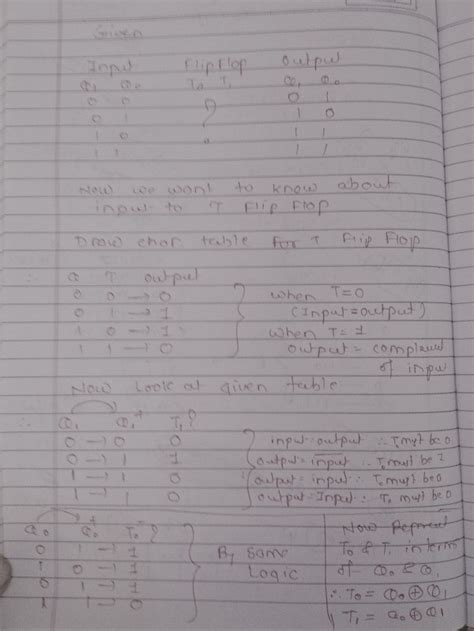 Given
Input FlipFlop Output
Q1 Q0 T0 T1 Q1 Q0
0 0 0 1
0 1 1 0
1 0 1 1
1 1 1 1
Now we want to know about
input to T Flip Flop
Draw char table for T Flip Flop
∴ Q T output
0 0 → 0 when T=0
0 1 → 1 (Input = output)
1 0 → 1 when T=1
1 1 → 0 output = complement of input
Now Look at given table
∴ Q1 Q1+ T1?
0 → 0 0 input = output ∴ T must be 0
0 → 1 1 output = input ∴ T must be 1
1 → 1 0 output = input ∴ T must be 0
1 → 1 0 output = Input ∴ T must be 0
Q0 Q0+ T0?
0 1 → 1
1 0 → 1
0 1 → 1
1 1 → 0
By Same
Logic
Now Represent
T0 & T1 in term
of Q0 & Q1
∴ T0 = Q0 ⊕ Q1
T1 = Q0 ⊕ Q1